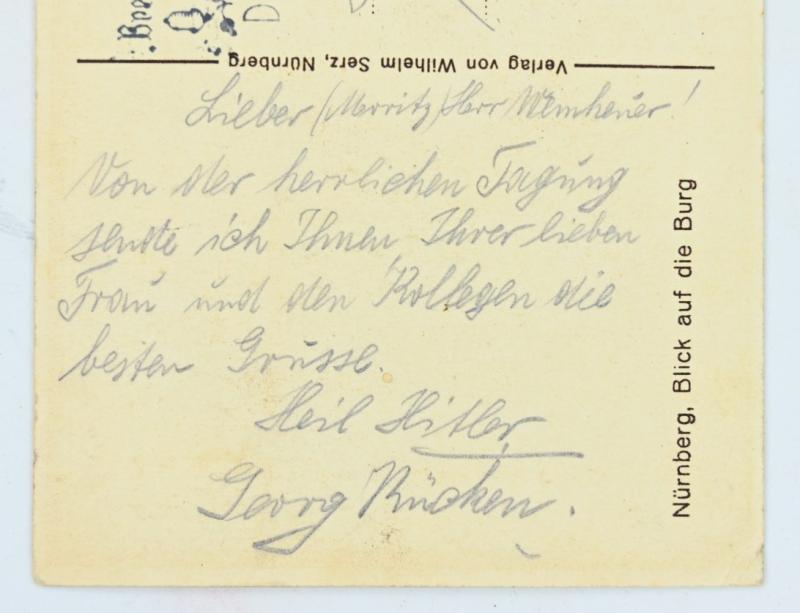 Verlag von Wilhelm Serz, Nürnberg
Lieber (Morritz) Herr Wemheuer!
Von der herrlichen Tagung
sende ich Ihnen, Ihrer lieben
Frau und den Kollegen die
besten Grüsse.
Heil Hitler
Georg Rücken.
Nürnberg, Blick auf die Burg